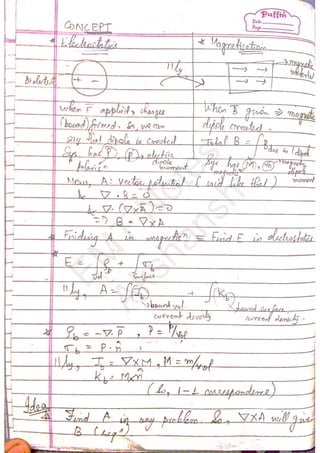 Puffin
Date
Page
CONCEPT
* Electrostatics
* Magnetisation
Dielectric
+
-
||ly
→ magnetic material
When E applied, charges
(bound) formed. So, we can
say that dipole is created
Sys. has P, p → electric
dipole moment
When B given ⇒ magnetic
dipole created.
Total B = ∫ B due to 1 dipole
Sys has M, m → magnetic
dipole moment
Now, A: vector potential (used like that)
& ∇.B = 0
& ∇.(∇×A) = 0
⇒ B = ∇×A
* Finding A in magnetisn = Find E in electrostatics
* E = ∫ρb + ∫σb
vol surface
||ly, A = ∫Jb + ∫Kb
bound vol. current density
bound surface current density.
* ρb = -∇.P , P = P/vol
σb = P.n̂
||ly, Jb = ∇×M, M = m/vol
Kb = M×n̂
(So, 1-1 correspondence)
Idea
* Find A in any problem. So, ∇×A will give
B (reqd)